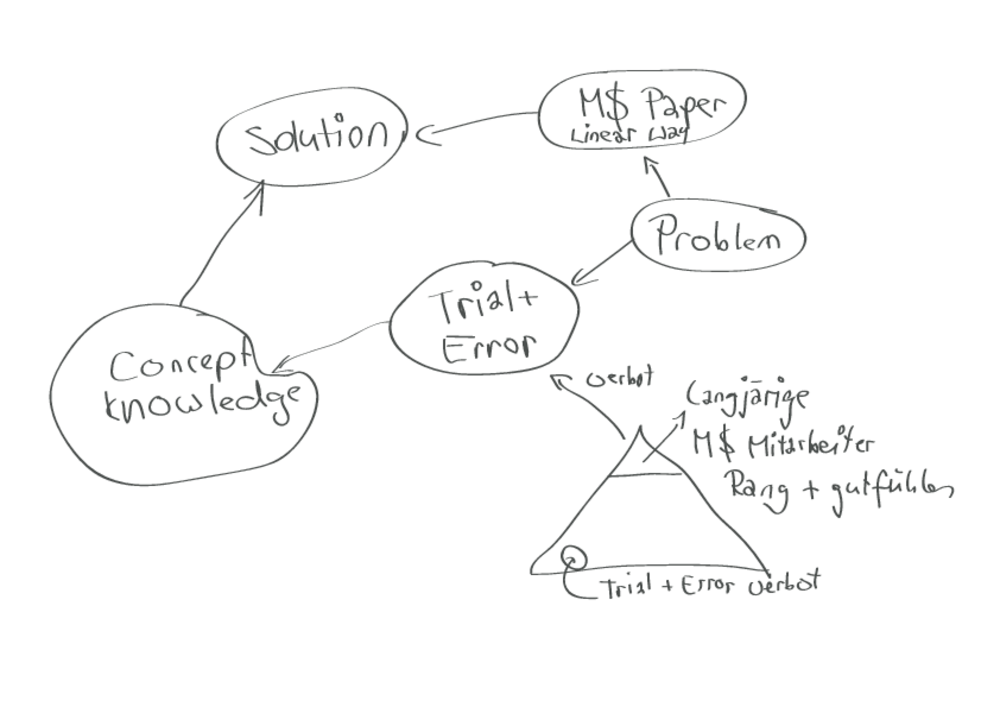 Solution
M$ Paper
Linear Way
Problem
Trial +
Error
Concept
knowledge
verbot
Langjärige
M$ Mitarbeiter
Rang + gutfühlen
Trial + Error verbot